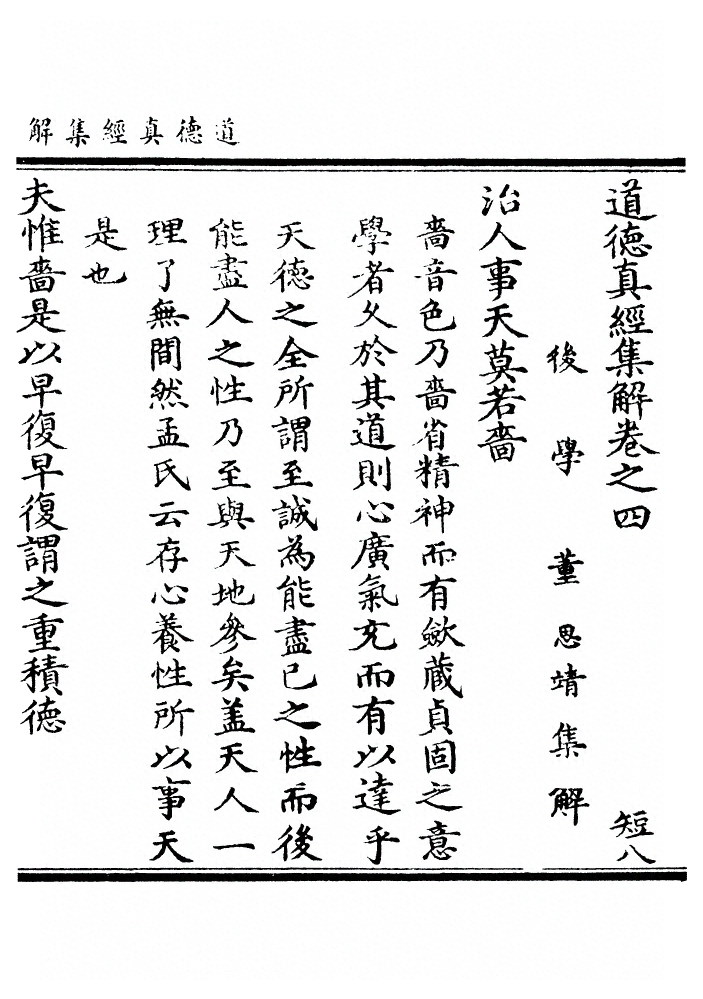 道德真經集解
道德真經集解卷之四 短八
後學董思靖集解
治人事天莫若嗇
嗇音色乃嗇省精神而有歛藏貞固之意
學者久於其道則心廣氣充而有以達乎
天德之全所謂至誠為能盡己之性而後
能盡人之性乃至與天地參矣盖天人一
理了無間然孟氏云存心養性所以事天
是也
夫惟嗇是以早復早復謂之重積德